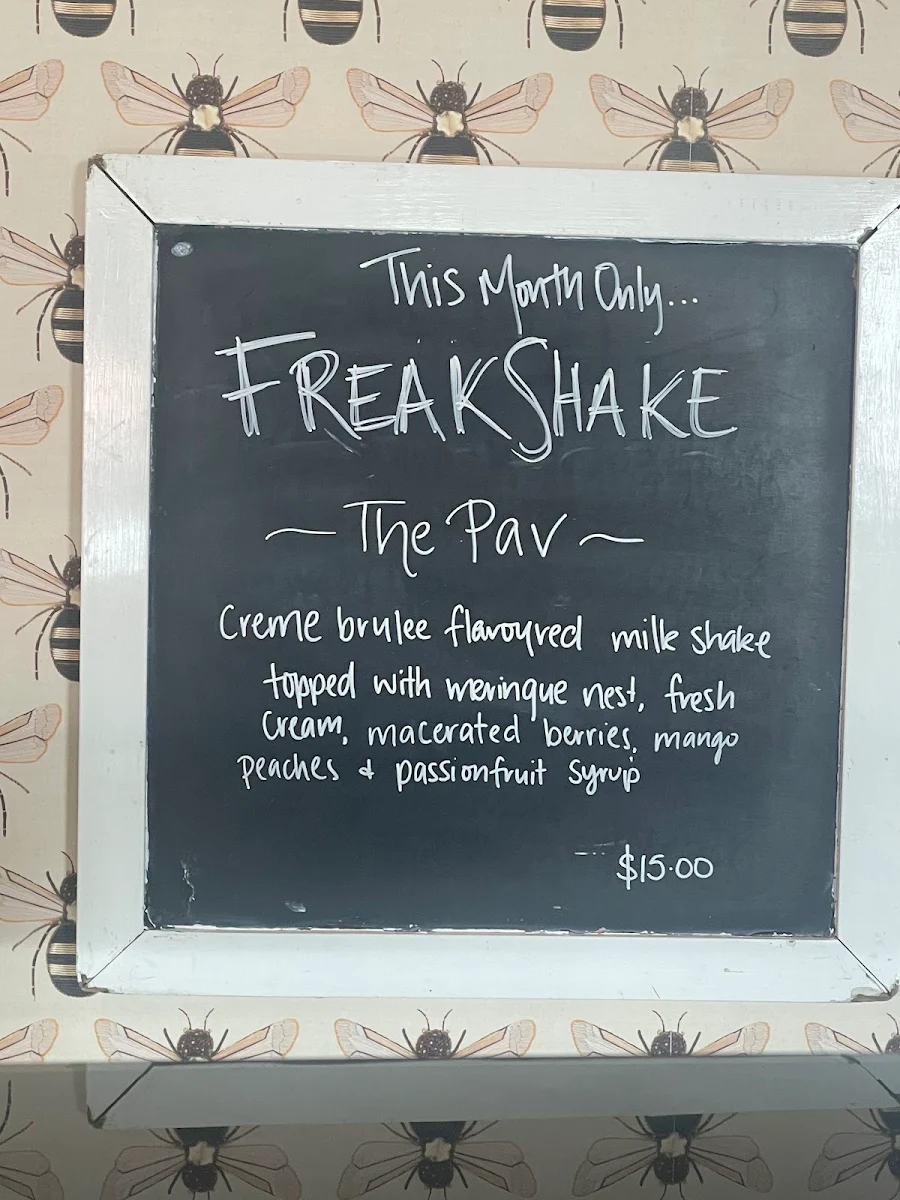 This Month Only...
FREAKSHAKE
~ The Pav ~
Creme brulee flavoured milk shake
topped with meringue nest, fresh
cream, macerated berries, mango
peaches & passionfruit syrup
$15.00